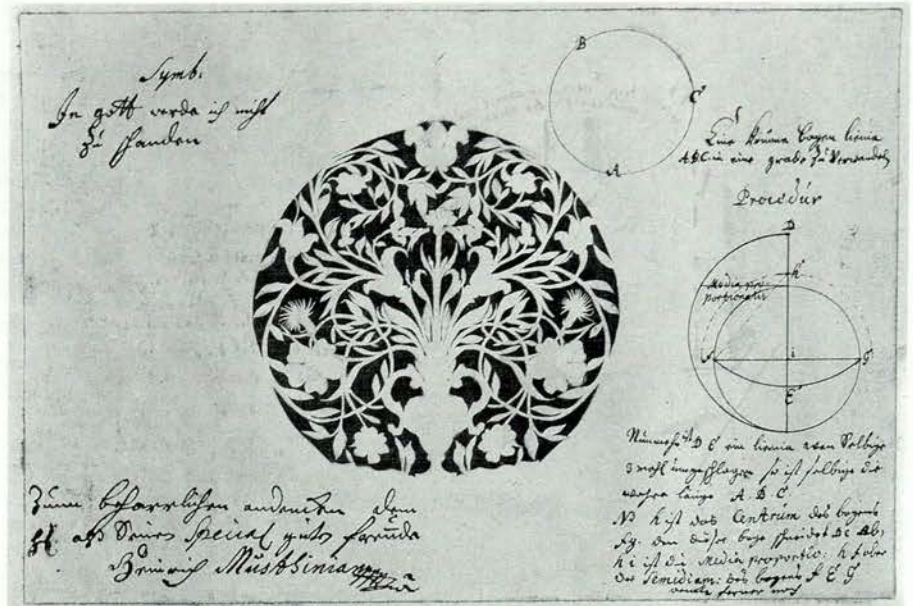 Symb:
In gott werde ich nicht
zu schanden
B
C
A
Eine krume bogen linia
ABC in eine grade zu verwandeln
Procedur
D
h
Media pro
portionatur
f
i
G
E
Nunmehr ist D E ein linia wan selbige
3 mahl umgeschlagen so ist selbige die
wahre länge A. B. C
NB h ist das Centrum des bogens
fg. den dieser boge schneidet DE ab,
hi ist die Media proportio: h f aber
der Semidiam: des bogens f E G
ferner noch
Zum beharrlichen andencken dem
als Seinen Special guten freunde
Heinrich